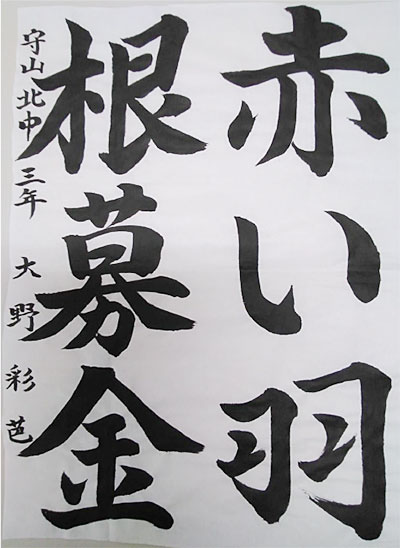 赤い羽
根募金
守山北中三年 大野彩芭